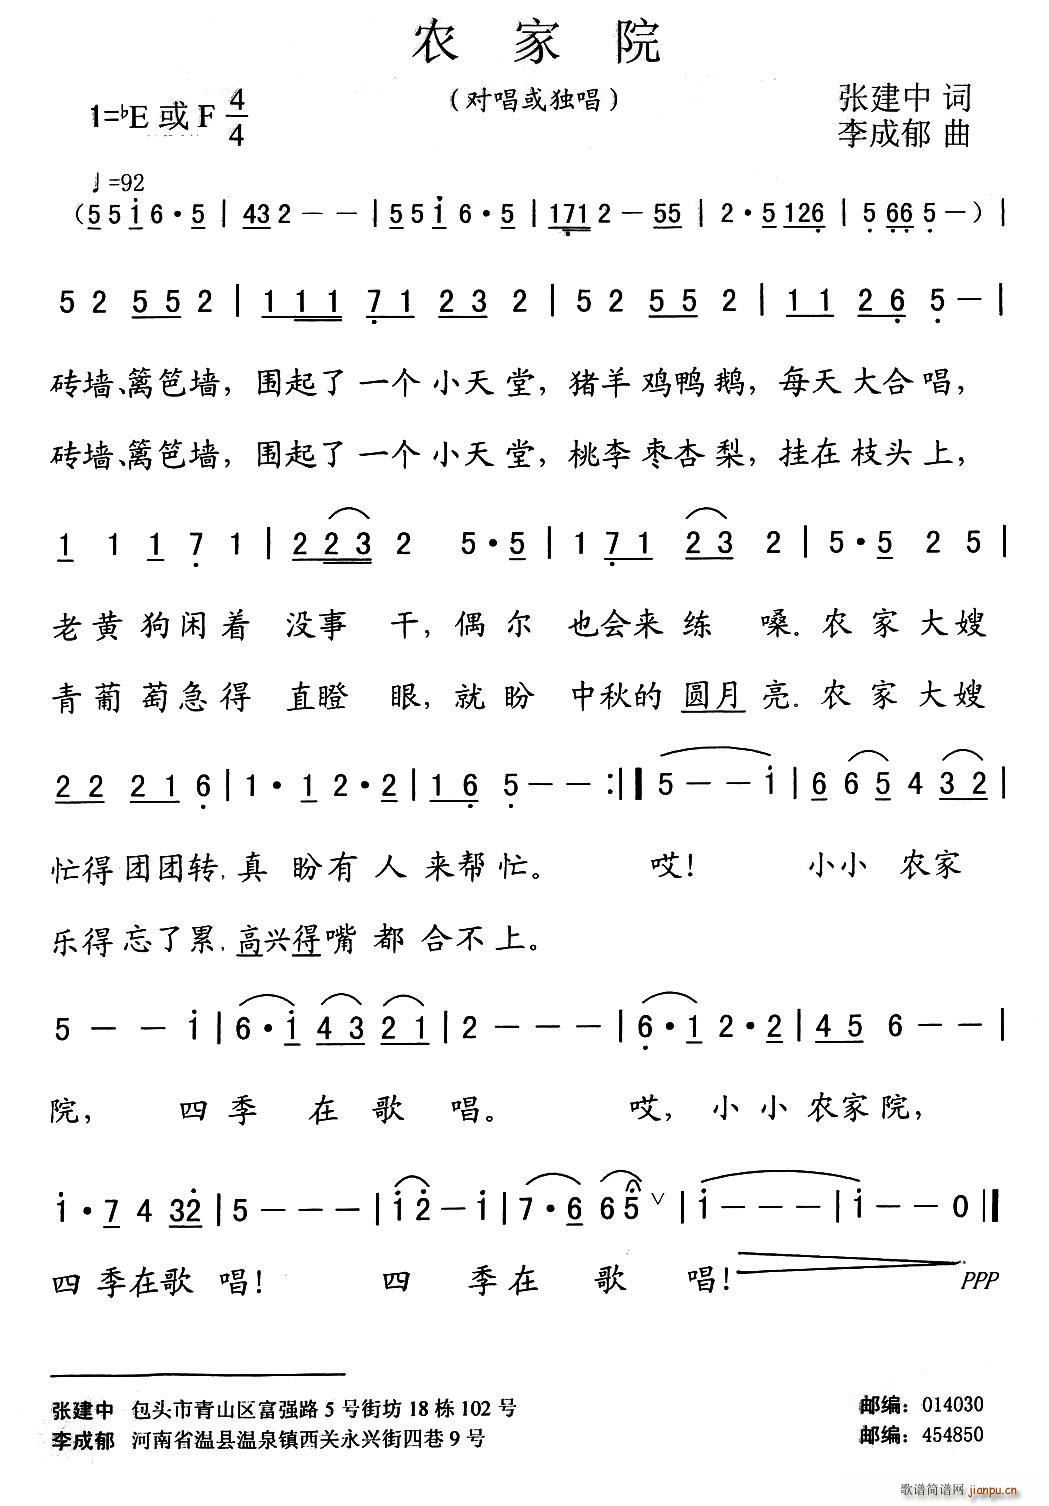 农家院
(对唱或独唱)
1=♭E 或 F 4/4
张建中 词
李成郁 曲
♩=92
(5 5 i 6 · 5 | 4 3 2 - - | 5 5 i 6 · 5 | 1 7 1 2 - 5 5 | 2 · 5 1 2 6 | 5 6 6 5 - ) |
5 2 5 5 2 | 1 1 1 7 1 2 3 2 | 5 2 5 5 2 | 1 1 2 6 5 - |
砖墙、篱笆墙，围起了一个小天堂，猪羊鸡鸭鹅，每天大合唱，
砖墙、篱笆墙，围起了一个小天堂，桃李枣杏梨，挂在枝头上，
1 1 1 7 1 | 2 2 3 2 5 · 5 | 1 7 1 2 3 2 | 5 · 5 2 5 |
老黄狗闲着没事干，偶尔也会来练嗓．农家大嫂
青葡萄急得直瞪眼，就盼中秋的圆月亮．农家大嫂
2 2 2 1 6 | 1 · 1 2 · 2 | 1 6 5 - - :‖ 5 - - i | 6 6 5 4 3 2 |
忙得团团转，真盼有人来帮忙。 哎！ 小小农家
乐得忘了累，高兴得嘴都合不上。
5 - - i | 6 · i 4 3 2 1 | 2 - - - | 6 · 1 2 · 2 | 4 5 6 - - |
院， 四季在歌唱。 哎，小小农家院，
i · 7 4 3 2 | 5 - - - | i 2 - i | 7 · 6 6 5 ∨ | i - - - | i - - 0 ‖
四季在歌唱！ 四季在歌唱！ PPP
张建中 包头市青山区富强路 5 号街坊 18 栋 102 号 邮编：014030
李成郁 河南省温县温泉镇西关永兴街四巷 9 号 邮编：454850
歌谱简谱网 jianpu.cn